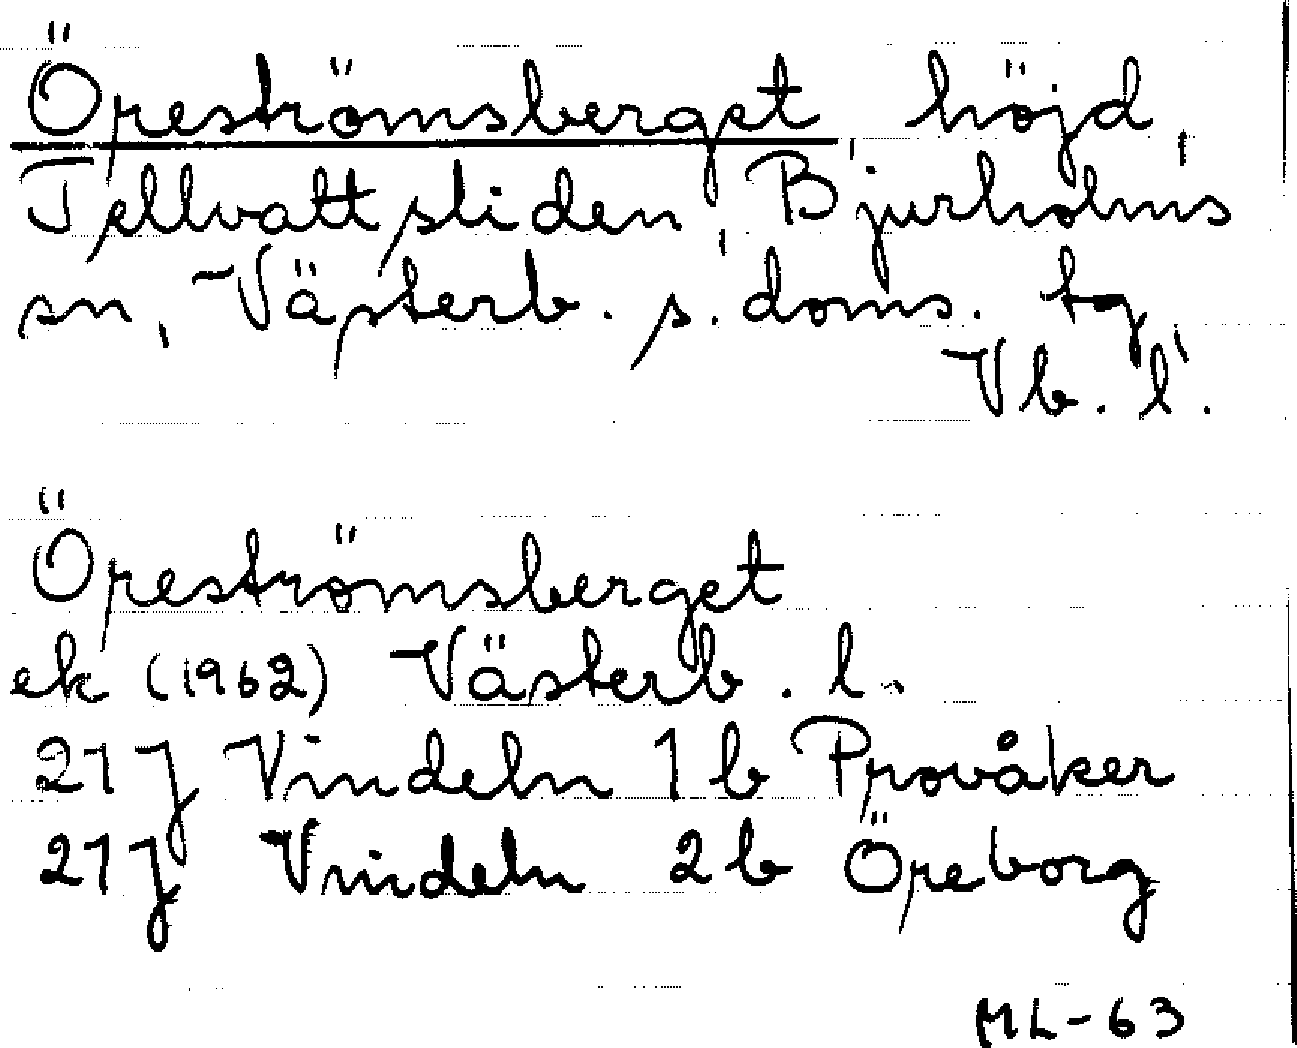 Öreströmsberget, höjd,
Tellvattsliden, Bjurholms
sn, Västerb. s. doms. tg,
Vb. l.
Öreströmsberget
ek (1962) Västerb. l.
21 J Vindeln 1 b Provåker
21 J Vindeln 2 b Öreborg
ML-63